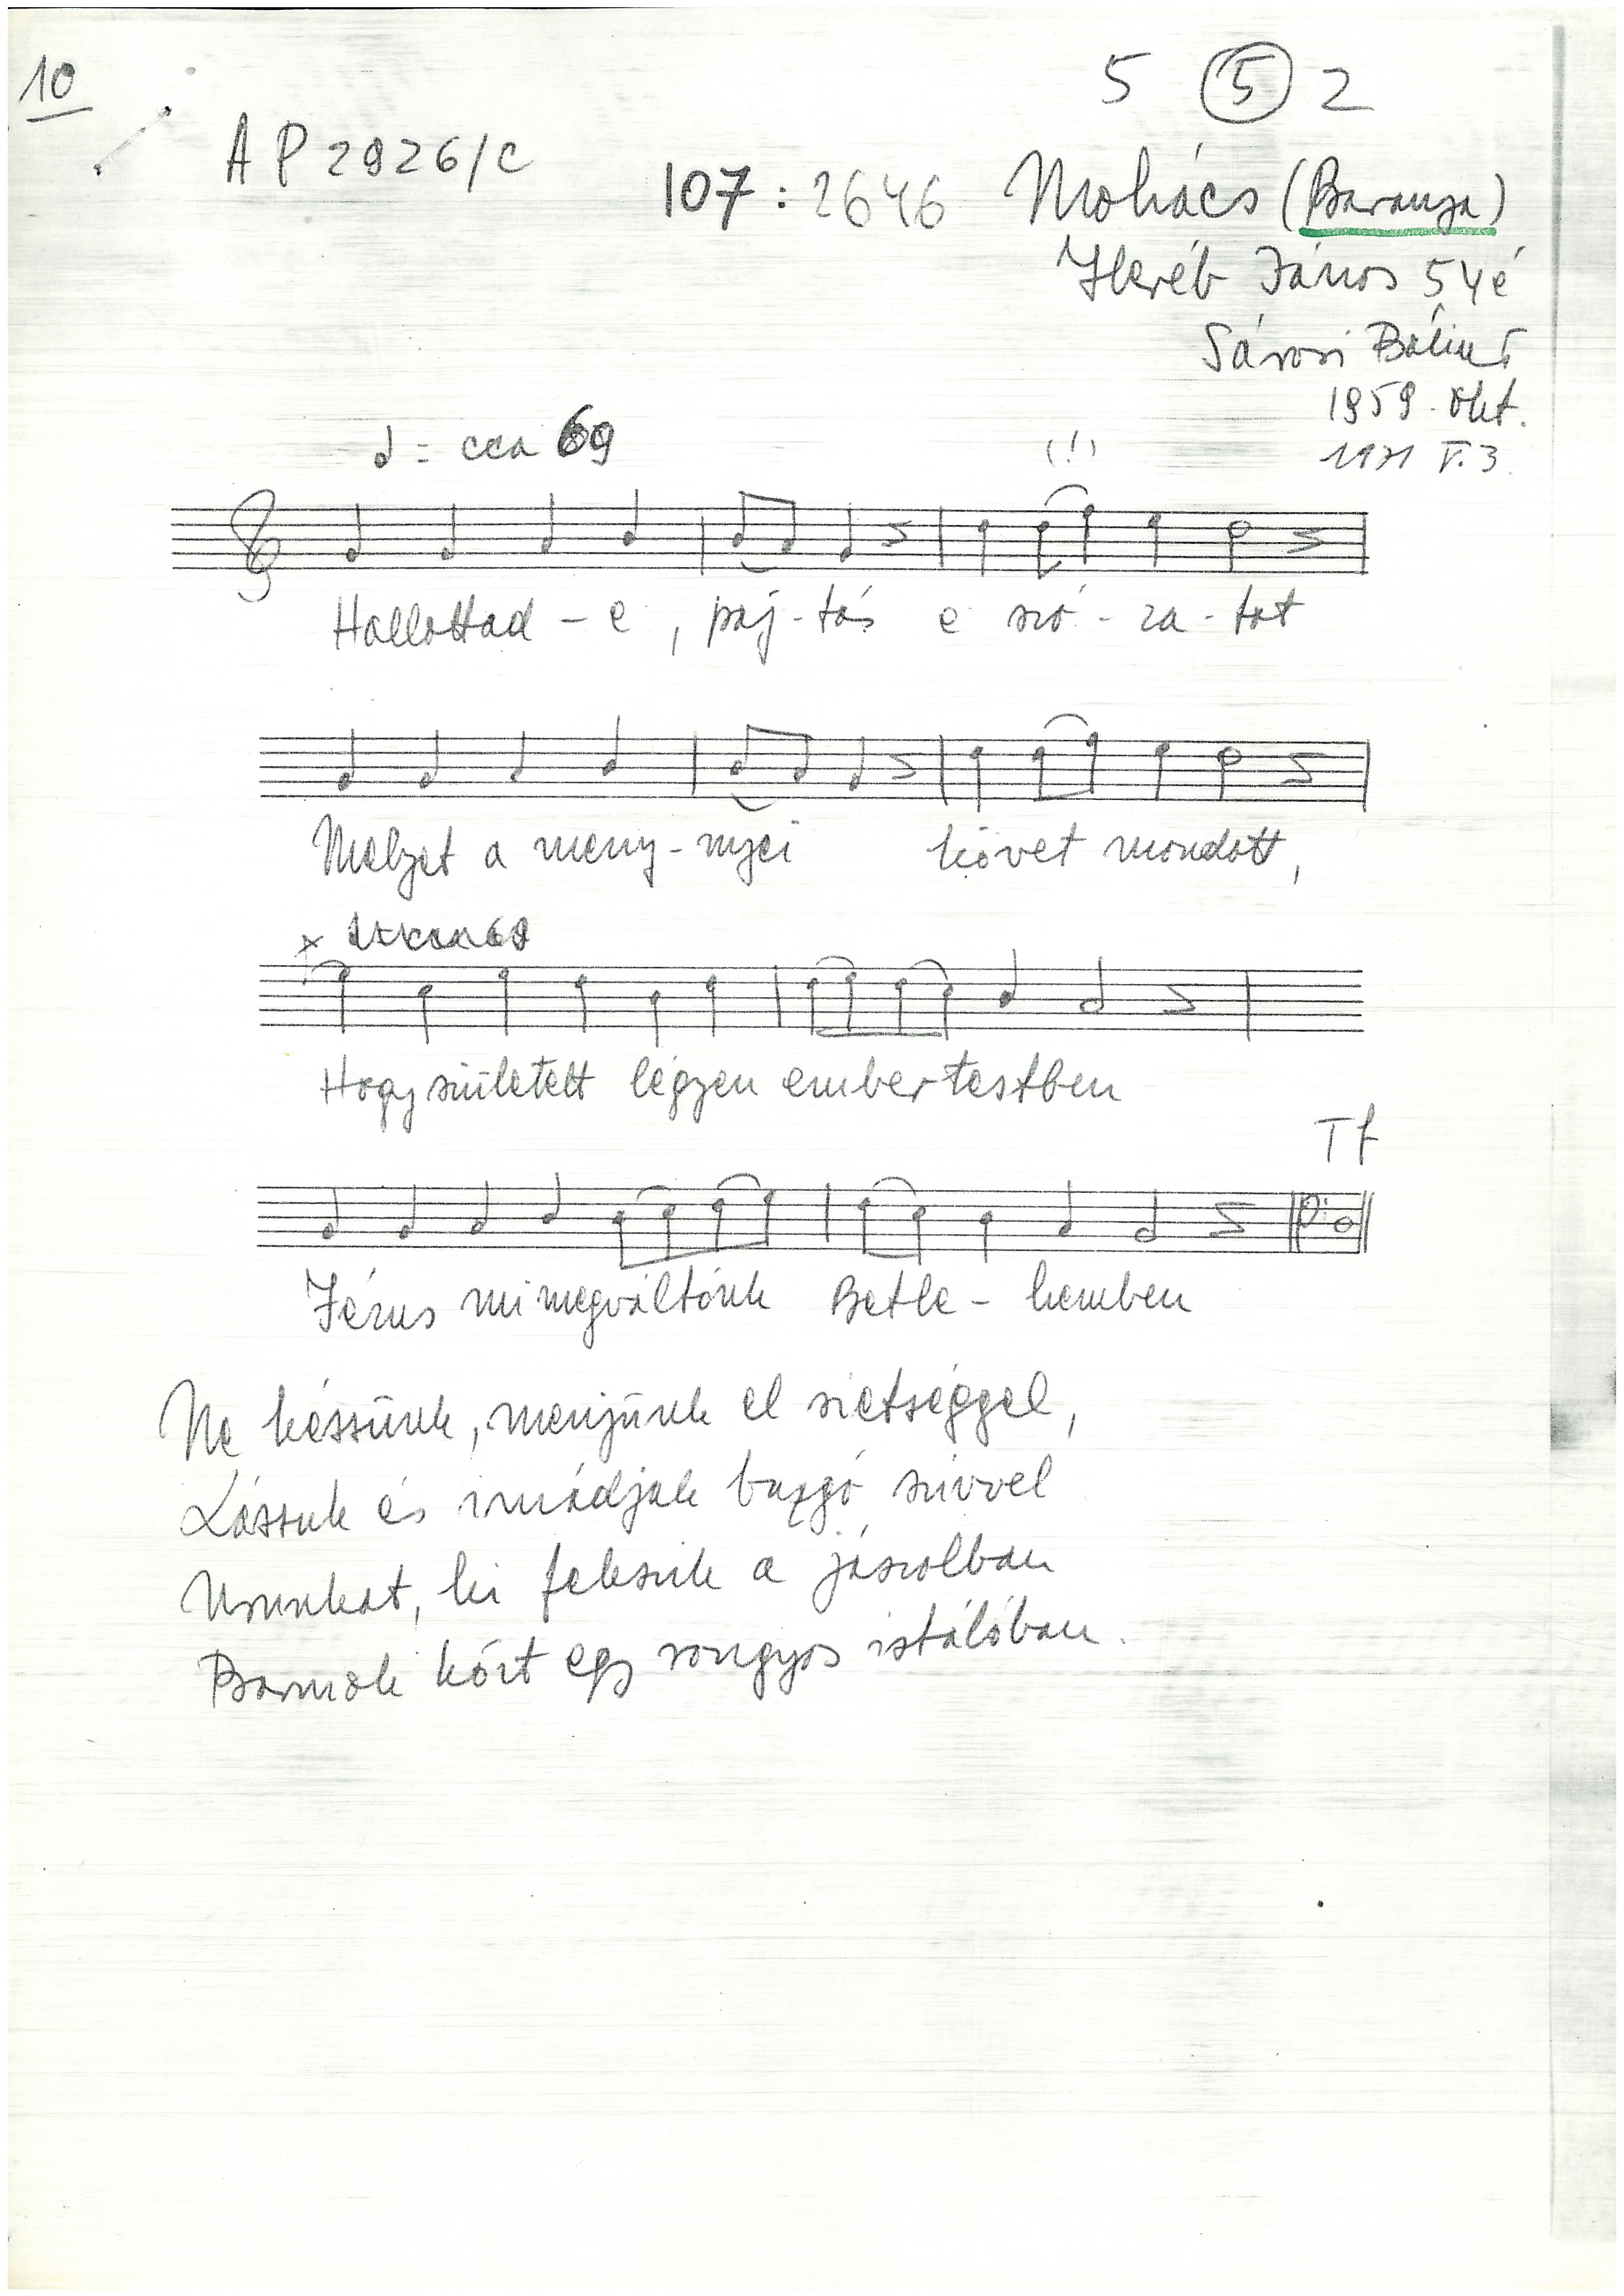 10
5 5 2
AP 2926/c
107 : 2646 Mohács (Baranya)
János 54 é
Sárosi Bálint
1959. okt.
1971 V. 3.
= cca 69
(!)
Hallottad - e, paj - tás e szó - za - tot
Melyet a meny - nyei követ mondott,
x
Hogy született légyen ember testben
Tf
Jézus mi megváltónk Betle - hemben
Ne késsünk, menjünk el sietséggel,
Lássuk és imádjuk buzgó szívvel
Urunkat, ki fekszik a jászolban
Barmok közt egy rongyos istálóban.